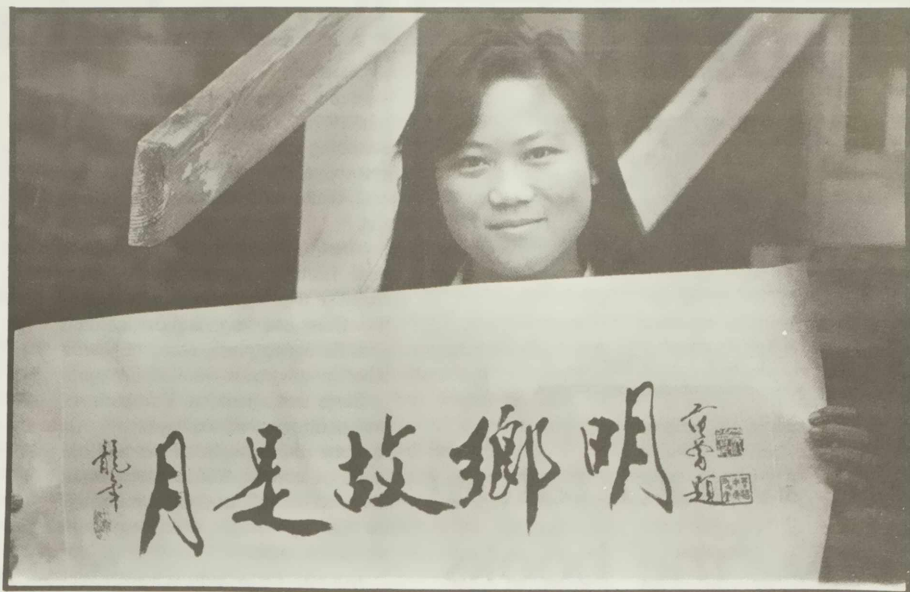 龍年
月是故鄉明
范曾題